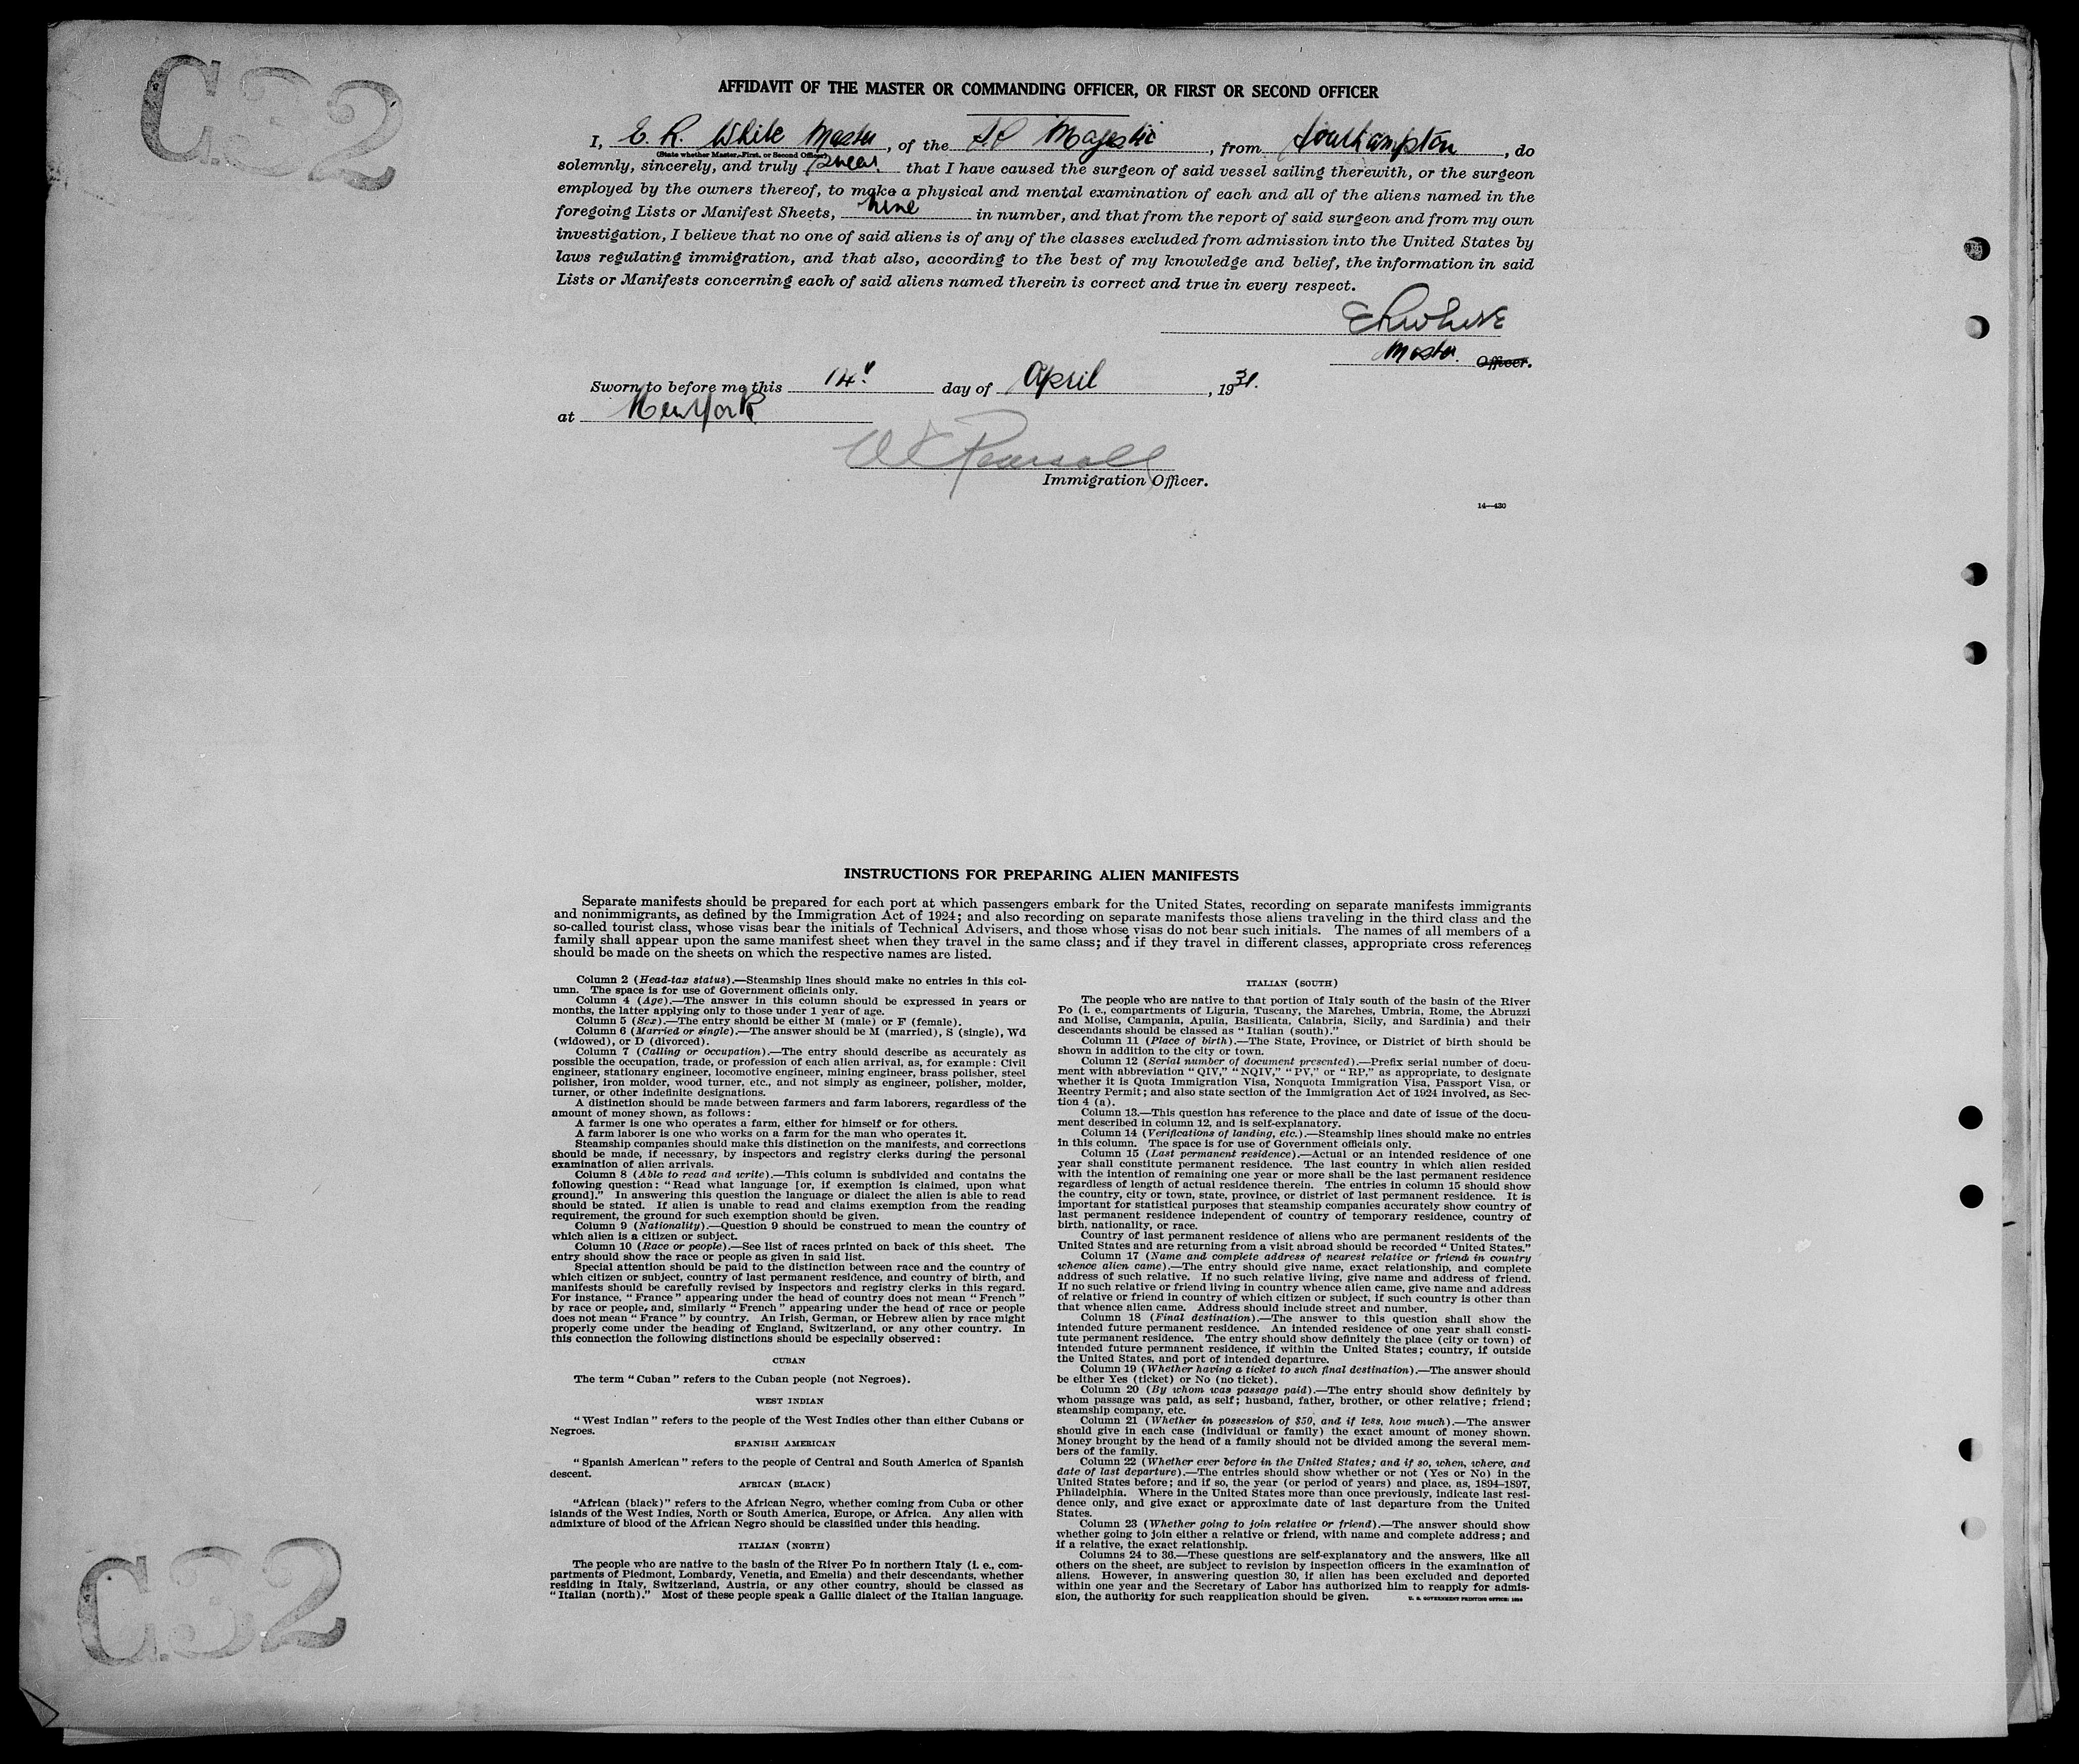 C.32
AFFIDAVIT OF THE MASTER OR COMMANDING OFFICER, OR FIRST OR SECOND OFFICER
I, E. R. White Master, of the S.S Majestic, from Southampton, do
(State whether Master, First, or Second Officer)
solemnly, sincerely, and truly swear. that I have caused the surgeon of said vessel sailing therewith, or the surgeon
employed by the owners thereof, to make a physical and mental examination of each and all of the aliens named in the
foregoing Lists or Manifest Sheets, nine in number, and that from the report of said surgeon and from my own
investigation, I believe that no one of said aliens is of any of the classes excluded from admission into the United States by
laws regulating immigration, and that also, according to the best of my knowledge and belief, the information in said
Lists or Manifests concerning each of said aliens named therein is correct and true in every respect.
ER White
Master. Officer.
Sworn to before me this 14" day of April, 1931.
at New York
Pearsall
Immigration Officer.
14—430
INSTRUCTIONS FOR PREPARING ALIEN MANIFESTS
Separate manifests should be prepared for each port at which passengers embark for the United States, recording on separate manifests immigrants
and nonimmigrants, as defined by the Immigration Act of 1924; and also recording on separate manifests those aliens traveling in the third class and the
so-called tourist class, whose visas bear the initials of Technical Advisers, and those whose visas do not bear such initials. The names of all members of a
family shall appear upon the same manifest sheet when they travel in the same class; and if they travel in different classes, appropriate cross references
should be made on the sheets on which the respective names are listed.
Column 2 (Head-tax status).—Steamship lines should make no entries in this col-
umn. The space is for use of Government officials only.
Column 4 (Age).—The answer in this column should be expressed in years or
months, the latter applying only to those under 1 year of age.
Column 5 (Sex).—The entry should be either M (male) or F (female).
Column 6 (Married or single).—The answer should be M (married), S (single), Wd
(widowed), or D (divorced).
Column 7 (Calling or occupation).—The entry should describe as accurately as
possible the occupation, trade, or profession of each alien arrival, as, for example: Civil
engineer, stationary engineer, locomotive engineer, mining engineer, brass polisher, steel
polisher, iron molder, wood turner, etc., and not simply as engineer, polisher, molder,
turner, or other indefinite designations.
A distinction should be made between farmers and farm laborers, regardless of the
amount of money shown, as follows:
A farmer is one who operates a farm, either for himself or for others.
A farm laborer is one who works on a farm for the man who operates it.
Steamship companies should make this distinction on the manifests, and corrections
should be made, if necessary, by inspectors and registry clerks during the personal
examination of alien arrivals.
Column 8 (Able to read and write).—This column is subdivided and contains the
following question: "Read what language [or, if exemption is claimed, upon what
ground]." In answering this question the language or dialect the alien is able to read
should be stated. If alien is unable to read and claims exemption from the reading
requirement, the ground for such exemption should be given.
Column 9 (Nationality).—Question 9 should be construed to mean the country of
which alien is a citizen or subject.
Column 10 (Race or people).—See list of races printed on back of this sheet. The
entry should show the race or people as given in said list.
Special attention should be paid to the distinction between race and the country of
which citizen or subject, country of last permanent residence, and country of birth, and
manifests should be carefully revised by inspectors and registry clerks in this regard.
For instance, "France" appearing under the head of country does not mean "French"
by race or people, and, similarly "French" appearing under the head of race or people
does not mean "France" by country. An Irish, German, or Hebrew alien by race might
properly come under the heading of England, Switzerland, or any other country. In
this connection the following distinctions should be especially observed:
CUBAN
The term "Cuban" refers to the Cuban people (not Negroes).
WEST INDIAN
"West Indian" refers to the people of the West Indies other than either Cubans or
Negroes.
SPANISH AMERICAN
"Spanish American" refers to the people of Central and South America of Spanish
descent.
AFRICAN (BLACK)
"African (black)" refers to the African Negro, whether coming from Cuba or other
islands of the West Indies, North or South America, Europe, or Africa. Any alien with
admixture of blood of the African Negro should be classified under this heading.
ITALIAN (NORTH)
The people who are native to the basin of the River Po in northern Italy (i. e., com-
partments of Piedmont, Lombardy, Venetia, and Emelia) and their descendants, whether
residing in Italy, Switzerland, Austria, or any other country, should be classed as
"Italian (north)." Most of these people speak a Gallic dialect of the Italian language.
ITALIAN (SOUTH)
The people who are native to that portion of Italy south of the basin of the River
Po (i. e., compartments of Liguria, Tuscany, the Marches, Umbria, Rome, the Abruzzi
and Molise, Campania, Apulia, Basilicata, Calabria, Sicily, and Sardinia) and their
descendants should be classed as "Italian (south)."
Column 11 (Place of birth).—The State, Province, or District of birth should be
shown in addition to the city or town.
Column 12 (Serial number of document presented).—Prefix serial number of docu-
ment with abbreviation "QIV," "NQIV," "PV," or "RP," as appropriate, to designate
whether it is Quota Immigration Visa, Nonquota Immigration Visa, Passport Visa, or
Reentry Permit; and also state section of the Immigration Act of 1924 involved, as Sec-
tion 4 (a).
Column 13.—This question has reference to the place and date of issue of the docu-
ment described in column 12, and is self-explanatory.
Column 14 (Verifications of landing, etc.).—Steamship lines should make no entries
in this column. The space is for use of Government officials only.
Column 15 (Last permanent residence).—Actual or an intended residence of one
year shall constitute permanent residence. The last country in which alien resided
with the intention of remaining one year or more shall be the last permanent residence
regardless of length of actual residence therein. The entries in column 15 should show
the country, city or town, state, province, or district of last permanent residence. It is
important for statistical purposes that steamship companies accurately show country of
last permanent residence independent of country of temporary residence, country of
birth, nationality, or race.
Country of last permanent residence of aliens who are permanent residents of the
United States and are returning from a visit abroad should be recorded "United States."
Column 17 (Name and complete address of nearest relative or friend in country
whence alien came).—The entry should give name, exact relationship, and complete
address of such relative. If no such relative living, give name and address of friend.
If no such relative or friend living in country whence alien came, give name and address
of relative or friend in country of which citizen or subject, if such country is other than
that whence alien came. Address should include street and number.
Column 18 (Final destination).—The answer to this question shall show the
intended future permanent residence. An intended residence of one year shall consti-
tute permanent residence. The entry should show definitely the place (city or town) of
intended future permanent residence, if within the United States; country, if outside
the United States, and port of intended departure.
Column 19 (Whether having a ticket to such final destination).—The answer should
be either Yes (ticket) or No (no ticket).
Column 20 (By whom was passage paid).—The entry should show definitely by
whom passage was paid, as self; husband, father, brother, or other relative; friend;
steamship company, etc.
Column 21 (Whether in possession of $50, and if less, how much).—The answer
should give in each case (individual or family) the exact amount of money shown.
Money brought by the head of a family should not be divided among the several mem-
bers of the family.
Column 22 (Whether ever before in the United States; and if so, when, where, and
date of last departure).—The entries should show whether or not (Yes or No) in the
United States before; and if so, the year (or period of years) and place, as, 1894–1897,
Philadelphia. Where in the United States more than once previously, indicate last resi-
dence only, and give exact or approximate date of last departure from the United
States.
Column 23 (Whether going to join relative or friend).—The answer should show
whether going to join either a relative or friend, with name and complete address; and
if a relative, the exact relationship.
Columns 24 to 36.—These questions are self-explanatory and the answers, like all
others on the sheet, are subject to revision by inspection officers in the examination of
aliens. However, in answering question 30, if alien has been excluded and deported
within one year and the Secretary of Labor has authorized him to reapply for admis-
sion, the authority for such reapplication should be given.
U. S. GOVERNMENT PRINTING OFFICE:
C.32